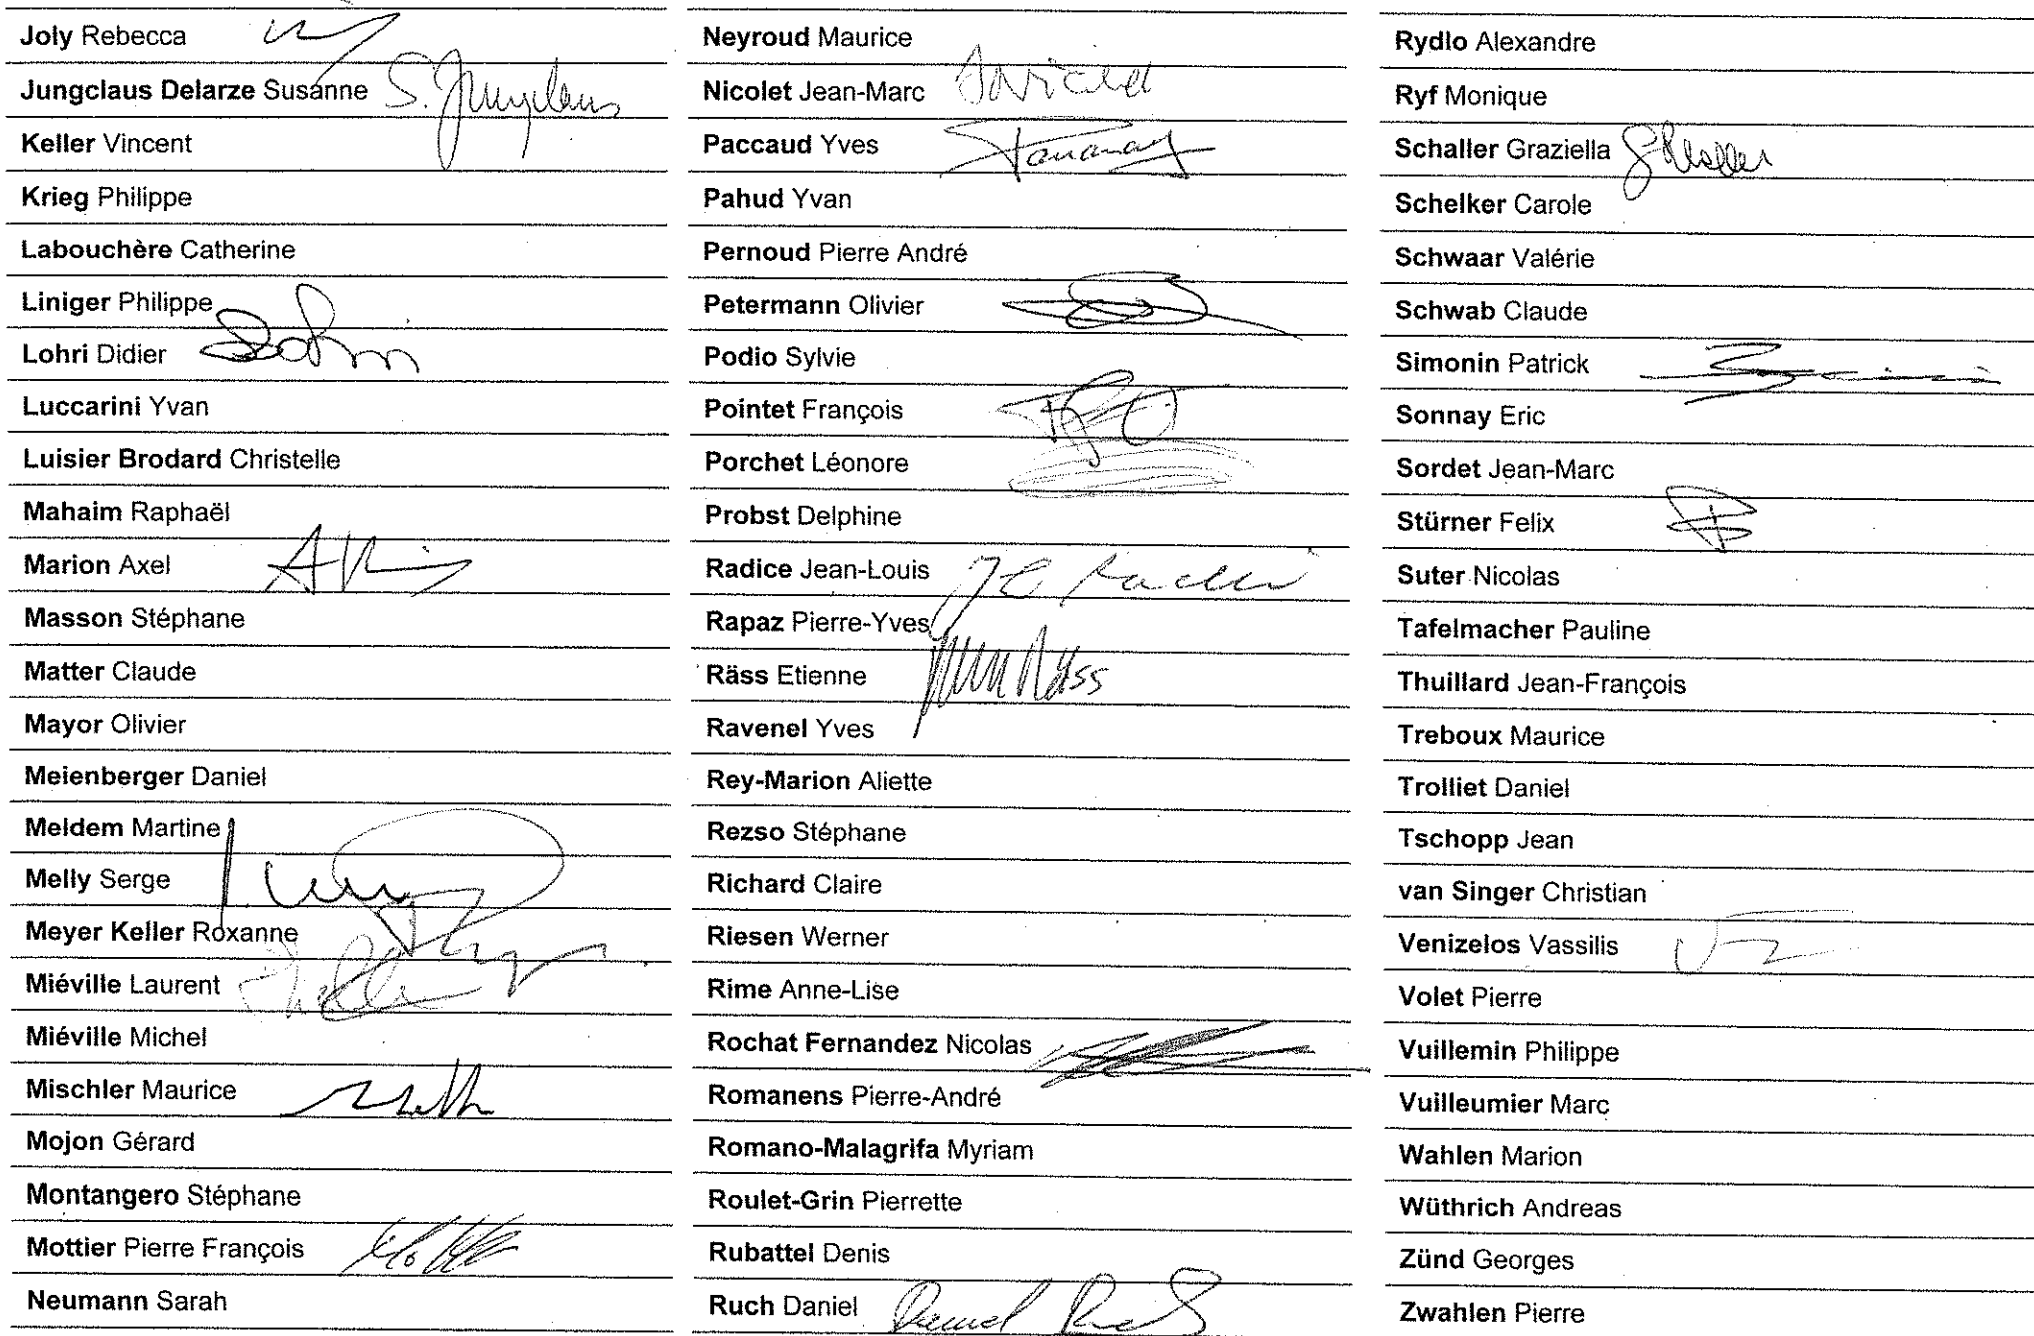 Joly Rebecca
Jungclaus Delarze Susanne S. Jungclaus
Keller Vincent
Krieg Philippe
Labouchère Catherine
Liniger Philippe
Lohri Didier
Luccarini Yvan
Luisier Brodard Christelle
Mahaim Raphaël
Marion Axel
Masson Stéphane
Matter Claude
Mayor Olivier
Meienberger Daniel
Meldem Martine
Melly Serge
Meyer Keller Roxanne
Miéville Laurent
Miéville Michel
Mischler Maurice
Mojon Gérard
Montangero Stéphane
Mottier Pierre François
Neumann Sarah
Neyroud Maurice
Nicolet Jean-Marc
Paccaud Yves
Pahud Yvan
Pernoud Pierre André
Petermann Olivier
Podio Sylvie
Pointet François
Porchet Léonore
Probst Delphine
Radice Jean-Louis
Rapaz Pierre-Yves
Räss Etienne
Ravenel Yves
Rey-Marion Aliette
Rezso Stéphane
Richard Claire
Riesen Werner
Rime Anne-Lise
Rochat Fernandez Nicolas
Romanens Pierre-André
Romano-Malagrifa Myriam
Roulet-Grin Pierrette
Rubattel Denis
Ruch Daniel Daniel Ruch
Rydlo Alexandre
Ryf Monique
Schaller Graziella
Schelker Carole
Schwaar Valérie
Schwab Claude
Simonin Patrick
Sonnay Eric
Sordet Jean-Marc
Stürner Felix
Suter Nicolas
Tafelmacher Pauline
Thuillard Jean-François
Treboux Maurice
Trolliet Daniel
Tschopp Jean
van Singer Christian
Venizelos Vassilis
Volet Pierre
Vuillemin Philippe
Vuilleumier Marc
Wahlen Marion
Wüthrich Andreas
Zünd Georges
Zwahlen Pierre